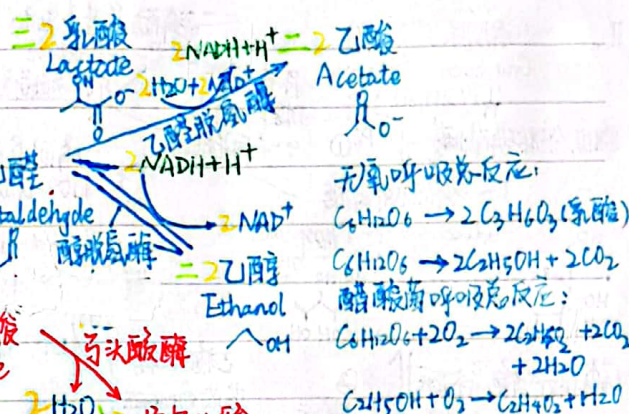 三 2 乳酸
Lactate
2NADH+H⁺
2H₂O+2NAD⁺
O⁻
O
乙醛脱氢酶
二 2 乙酸
Acetate
O⁻
2NADH+H⁺
2NAD⁺
醛
taldehyde
醇脱氢酶
二 2 乙醇
Ethanol
OH
无氧呼吸总反应:
C₆H₁₂O₆ → 2C₃H₆O₃(乳酸)
C₆H₁₂O₆ → 2C₂H₅OH + 2CO₂
醋酸菌呼吸总反应:
C₆H₁₂O₆+2O₂ → 2C₂H₄O₂ +2CO₂
+2H₂O
C₂H₅OH+O₂ → C₂H₄O₂+H₂O
酸
延胡索酸酶
2H₂O